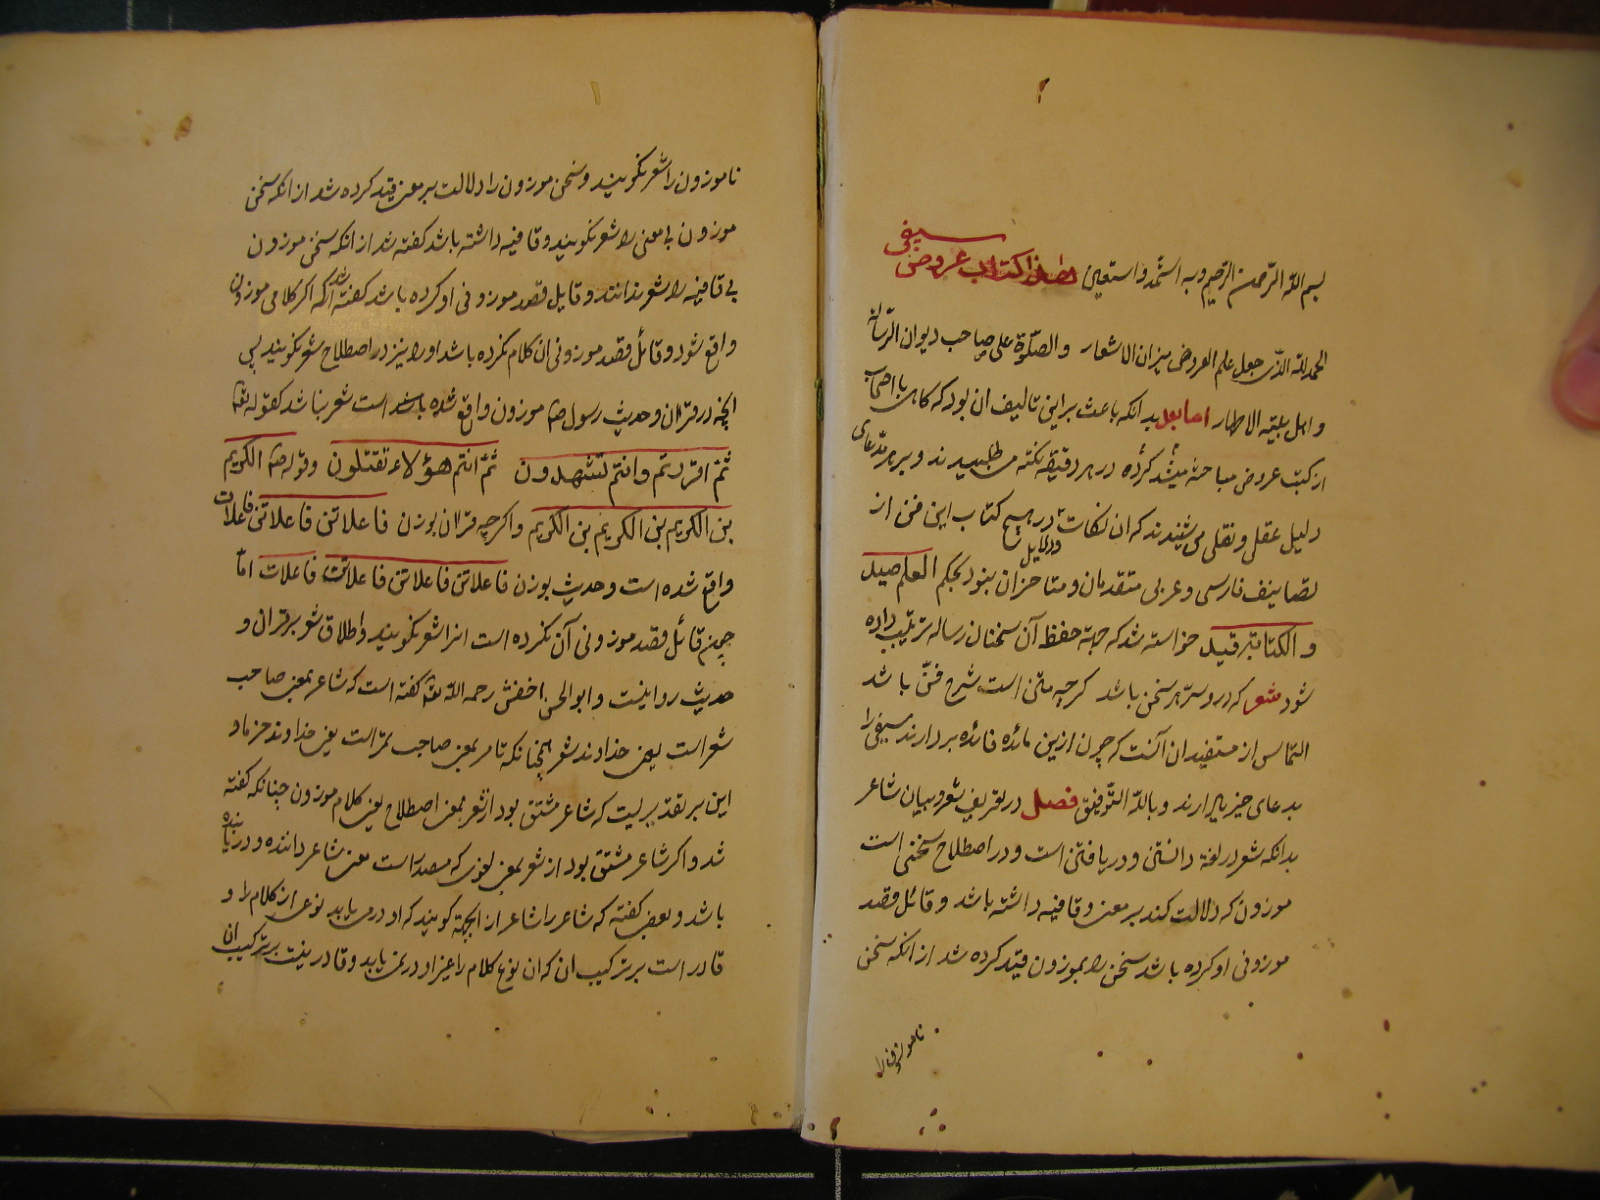 بسم الله الرحمن الرحیم وبه استمد واستعین هذا کتاب عروض سیفی
الحمدلله الذی جعل علم العروض میزان الاشعار والصلوة علی صاحب دیوان الرساله
و اهل بیته الاطهار اما بعد بدانکه باعث براین تالیف ان بود که کاهی با اصحاب
از کتب عروض مباحثه میشد کرده در هر دقیقه نکته می طلبیدند و بر هر مدعای
دلیل عقلی و نقلی می شنیدند که ان نکات و دلایل در هیچ کتاب این فن از
تصانیف فارسی و عربی متقدمان و متاخران نبود بحکم العلم صید
و الکتابة قید خواسته شد که جهة حفظ آن سخنان رساله ترتیب داده
شود شعر که درو سر هر سخن باشد کرچه متن است شرح فن باشد
التماس از مستفیدان آنست که چون ازین مائده فائده بردارند سیفی را
بدعای خیر یاد ارند و بالله التوفیق فصل در تعریف شعر و بیان شاعر
بدانکه شعر در لغة دانستن و دریافتن است و در اصطلاح سخنی است
موزون که دلالت کند بر معنی و قافیه داشته باشد و قائل قصد
موزونی او کرده باشد سخن را بموزون قید کرده شد از انکه سخن
ناموزون را
ناموزون را شعر نکویند و سخن موزون را دلالت بر معنی قید کرده شد از انکه سخن
موزون بی معنی را شعر نکویند و قافیه داشته باشد کفته شد از انکه سخن موزون
بی قافیه را شعر ندانند و قایل قصد موزونی او کرده باشد کفته شد که اکر کلامی موزون
واقع شود و قائل قصد موزونی ان کلام نکرده باشد اورا نیز در اصطلاح شعر نکویند پس
انچه در قران و حدیث رسول موزون واقع شده است شعر نباشد کقوله تعا
ثم اقررتم وانتم تشهدون ثم انتم هؤلاء تقتلون وقوله الکریم
بن الکریم بن الکریم بن الکریم و اکرچه قران بوزن فاعلاتن فاعلاتن فاعلات
واقع شده است و حدیث بوزن فاعلاتن فاعلاتن فاعلاتن فاعلات اما
چون قائل قصد موزونی آن نکرده است انرا شعر نکویند و اطلاق شعر بر قران و
حدیث روا نیست و ابوالحسن اخفش رحمه الله تعا کفته است که شاعر بمعنی صاحب
شعر است یعنی خداوند شعر همچنانکه تامر بمعنی صاحب تمر است یعنی خداوند خرما و
این بر تقدیریست که شاعر مشتق بود از شعر بمعنی اصطلاح یعنی کلام موزون چنانکه کفته
شد و اکر شاعر مشتق بود از شعر بمعنی لغوی که مصدر است معنی شاعر داننده و دریابنده
باشد و بعضی کفته که شاعر را شاعر از انجهة کویند که او در می یابد نوعی از کلام را و
قادر است بر ترکیب ان که ان نوع کلام را غیر او در نمی یابد و قادر نیست بر ترکیب ان